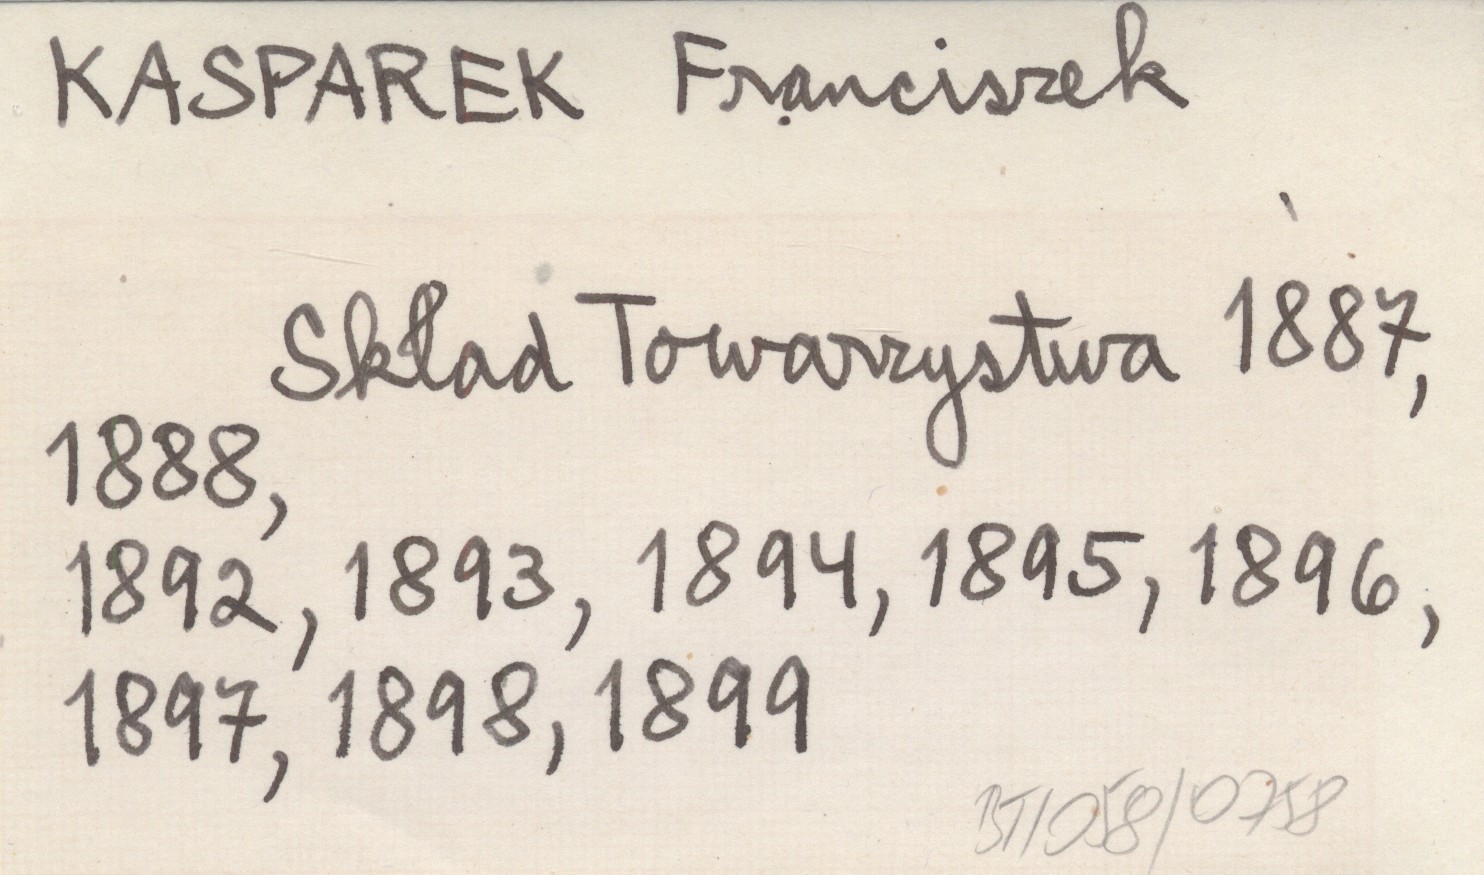 KASPAREK Franciszek
Skład Towarzystwa 1887,
1888,
1892, 1893, 1894, 1895, 1896,
1897, 1898, 1899
BT/058/0758